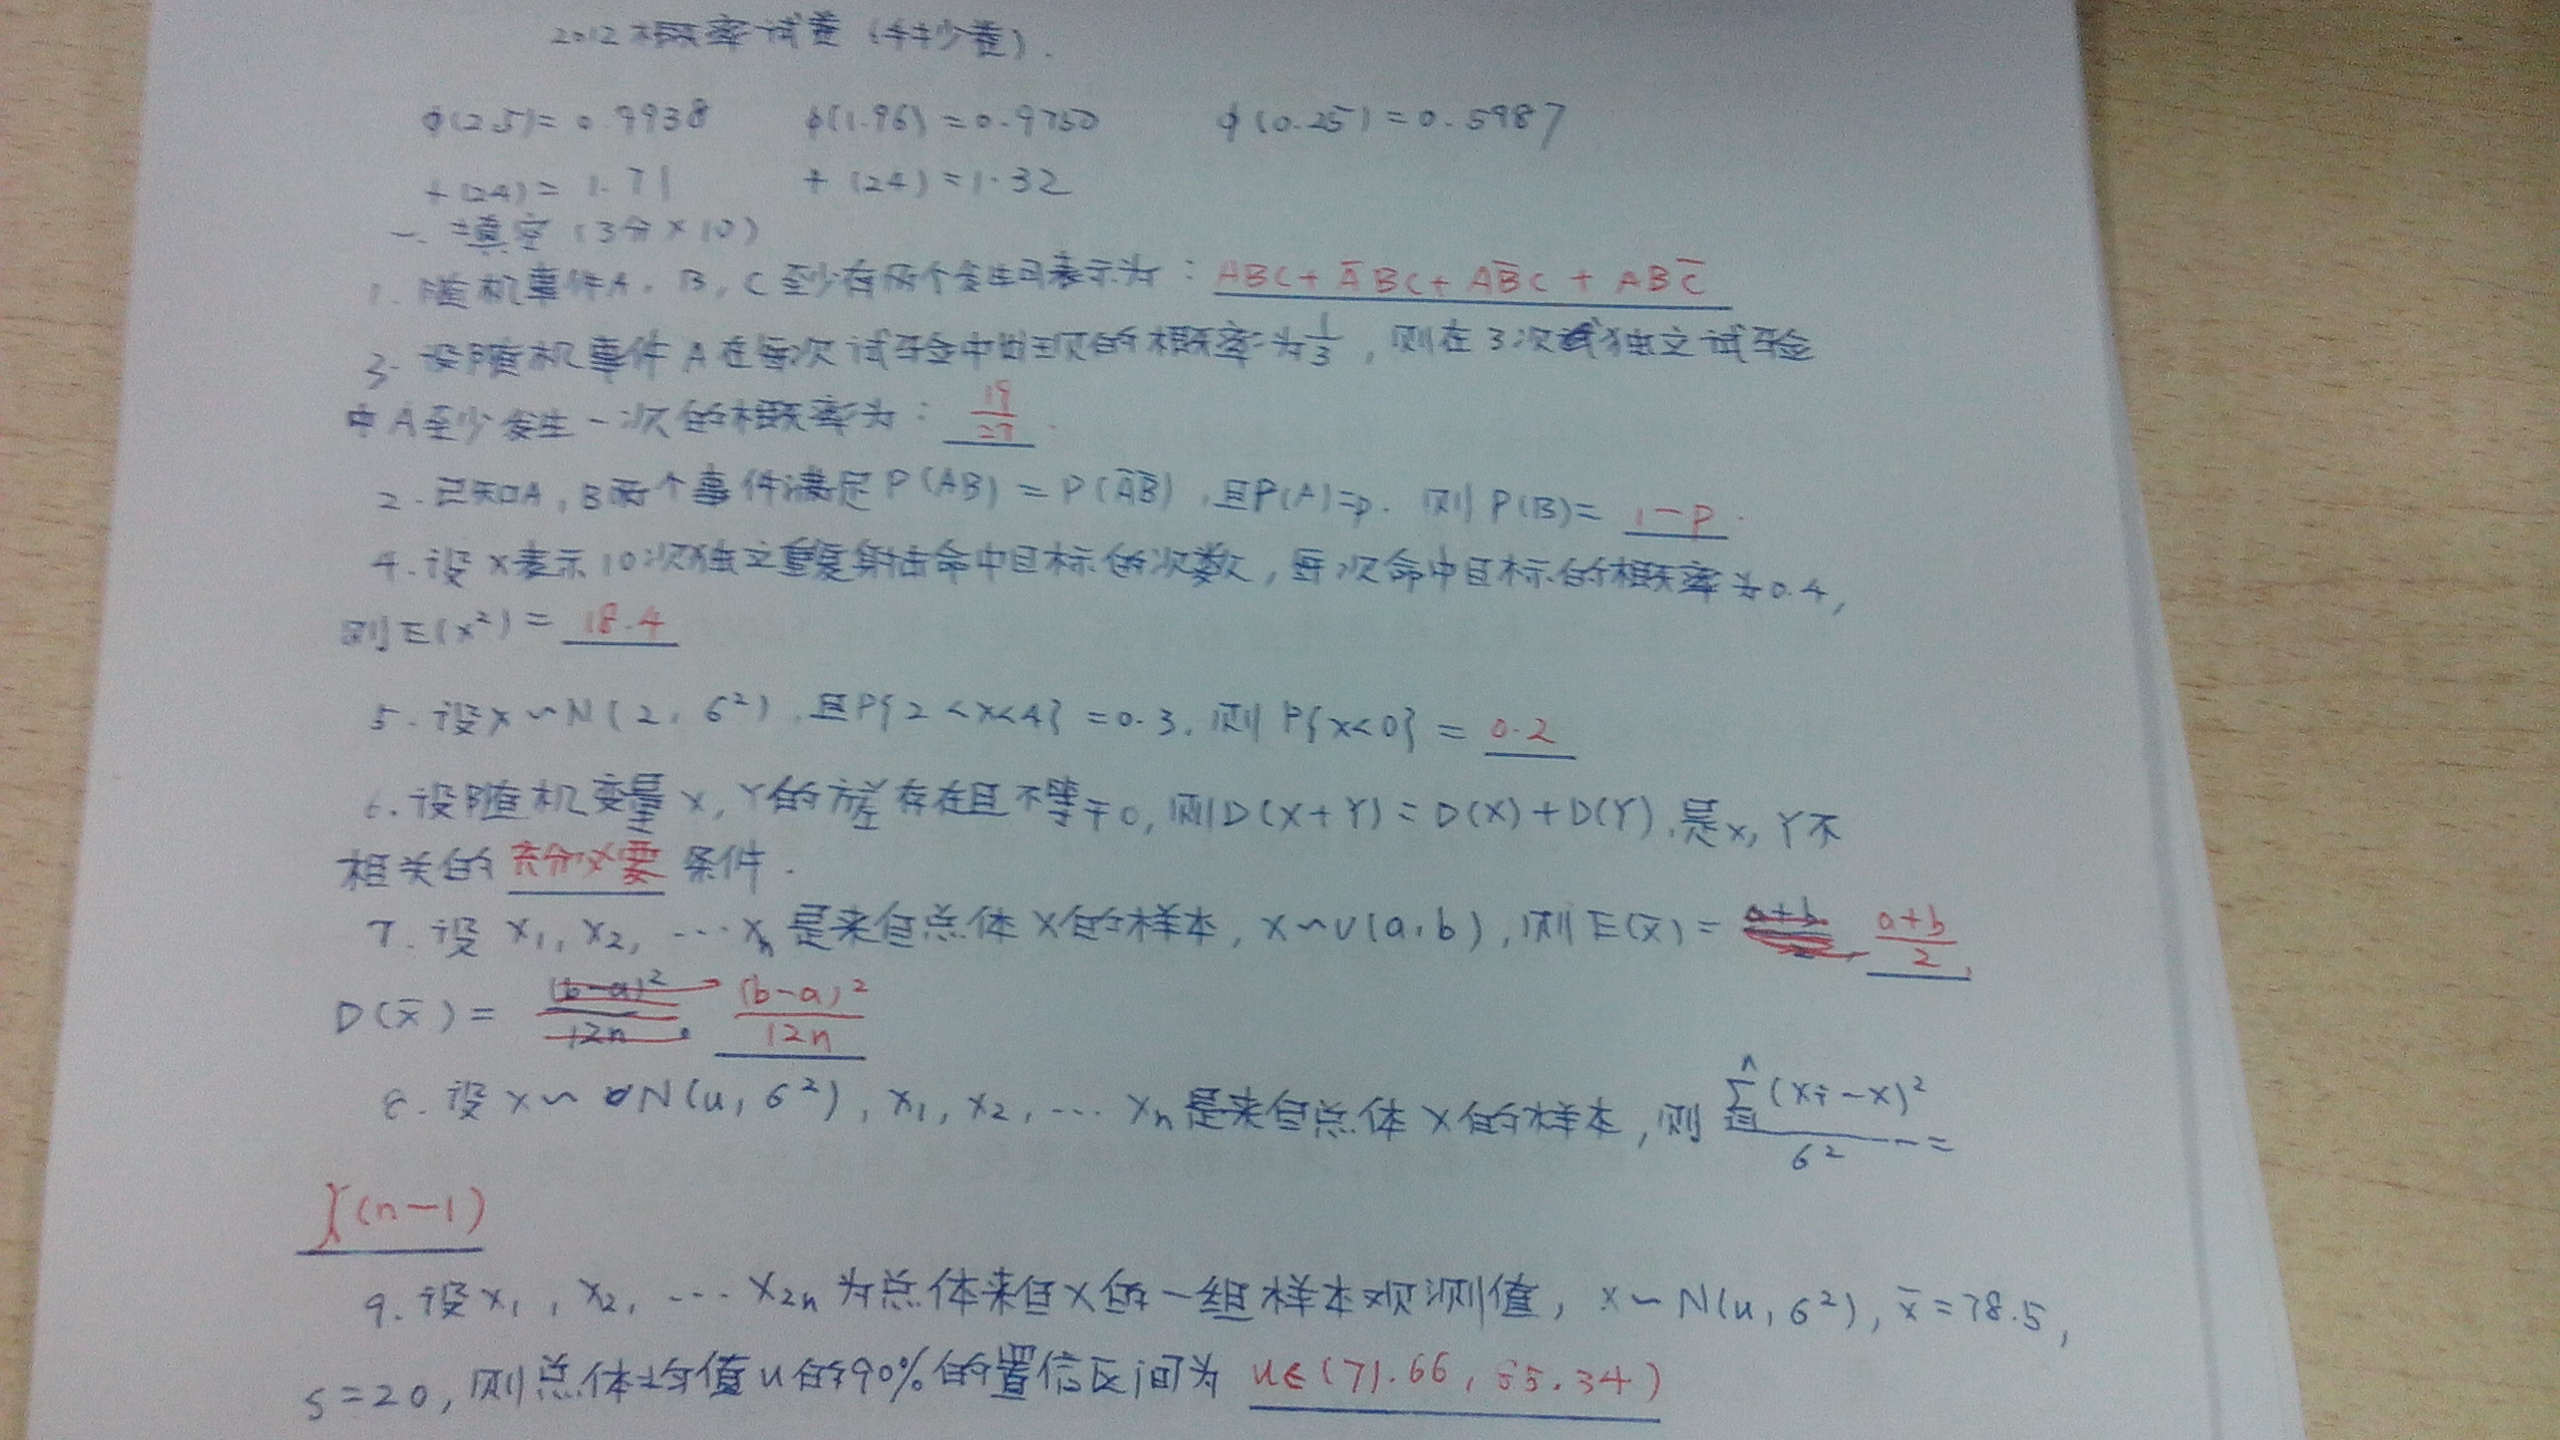 2012概率试卷（缺少卷）.
φ(2.5)=0.9938 φ(1.96)=0.9750 φ(0.25)=0.5987
t(24)=1.71 t(24)=1.32
一.填空（3分×10）
1.随机事件A,B,C至少有两个发生可表示为：ABC+A̅BC+AB̅C+ABC̅
3.设随机事件A在每次试验中出现的概率为1/3,则在3次独立试验
中A至少发生一次的概率为：19/27.
2.已知A,B两个事件满足P(AB)=P(A̅B̅),且P(A)=p.则P(B)=1-p.
4.设X表示10次独立重复射击命中目标的次数,每次命中目标的概率为0.4,
则E(x²)=18.4
5.设X~N(2,σ²),且P{2<X<4}=0.3,则P{X<0}=0.2
6.设随机变量X,Y的方差存在且不等于0,则D(X+Y)=D(X)+D(Y),是X,Y不
相关的充分必要条件.
7.设X₁,X₂,…Xₙ是来自总体X的样本,X~U(a,b),则E(x̅)=a+b/2 a+b/2,
D(x̅)=(b-a)²/12n (b-a)²/12n
8.设X~N(u,σ²),X₁,X₂,…Xₙ是来自总体X的样本,则∑ⁿ(Xi-X)²/σ²=
χ(n-1)
9.设X₁,X₂,…X₂ₙ为总体来自X的一组样本观测值,X~N(u,σ²),x̅=78.5,
s=20,则总体均值u的90%的置信区间为u∈(71.66,85.34)